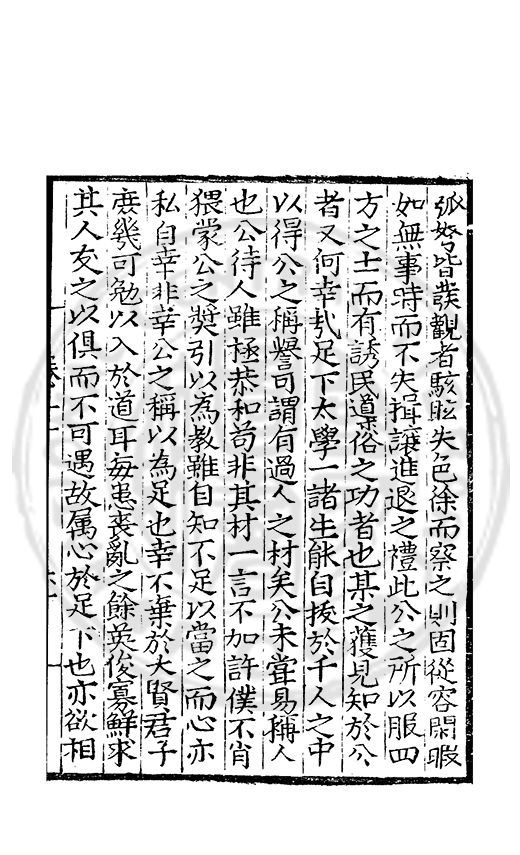 弧弩皆發觀者駭眩失色徐而察之則固從容閑暇
如無事時而不失揖讓進退之禮此公之所以服四
方之士而有誘民道俗之功者也某之獲見知於公
者又何幸哉足下太學一諸生能自拔於千人之中
以得公之稱譽可謂有過人之材矣公未嘗易稱人
也公待人雖極恭和苟非其材一言不加許僕不肖
猥蒙公之奬引以為教雖自知不足以當之而心亦
私自幸非幸公之稱以為足也幸不棄於大賢君子
庶幾可勉以入於道耳每患喪亂之餘英俊寡鮮求
其人友之以俱而不可遇故属心於足下也亦欲相